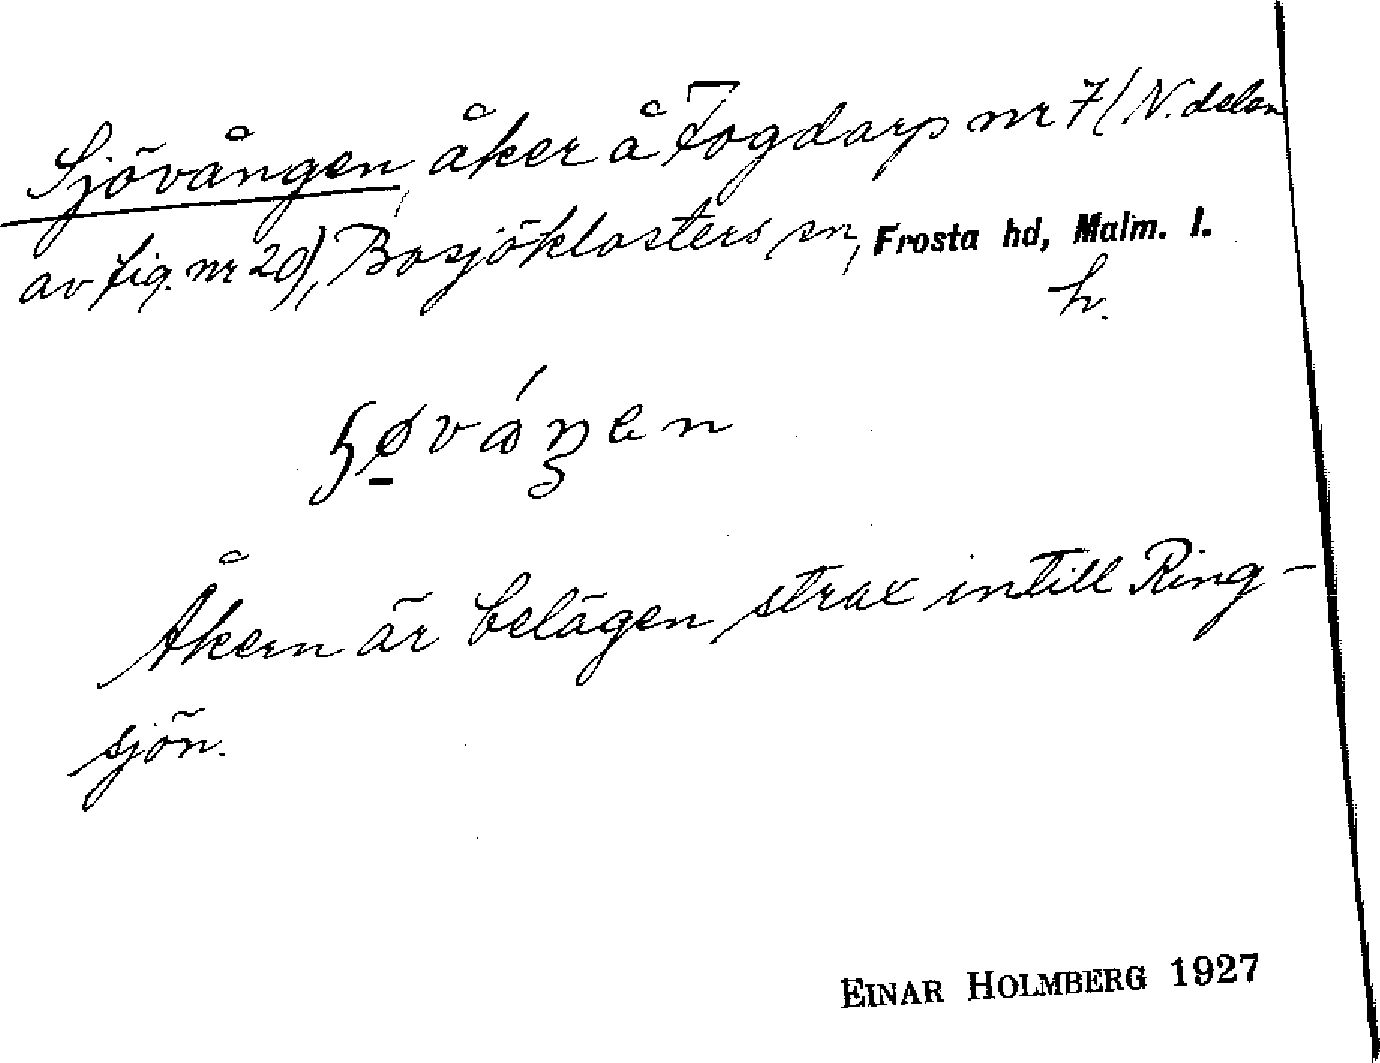 Sjövången, åker å Fogdarp nr 7 (N. delen
av fig. nr 20), Bosjöklosters sn, Frosta hd, Malm. l.
h.
Åkern är belägen strax intill Ring-
sjön.
EINAR HOLMBERG 1927